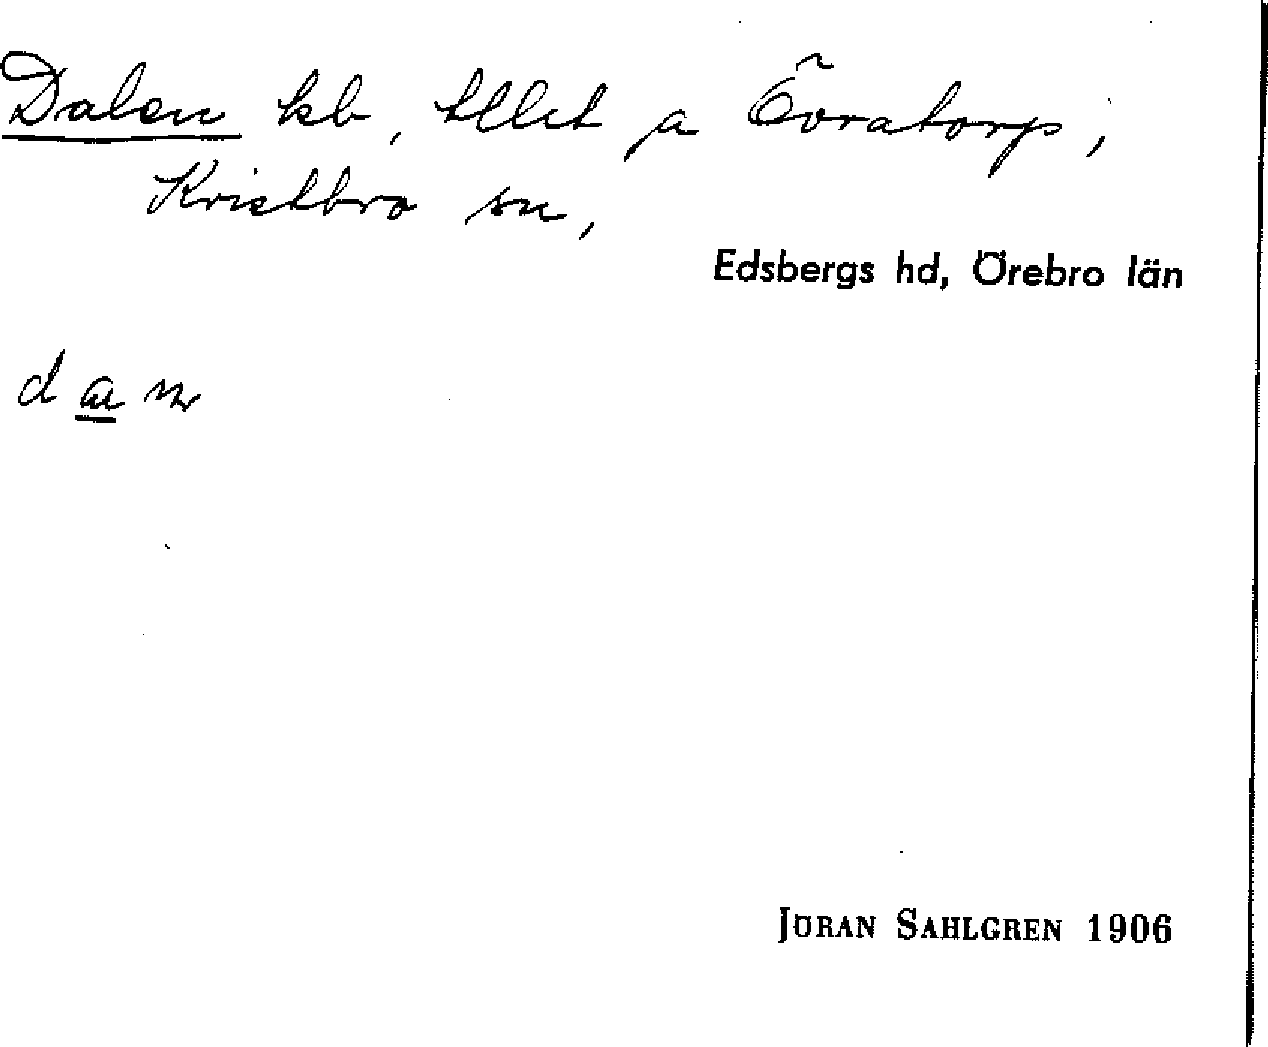 Dalen kb, tllet på Övratorp,
Kvistbro sn,
Edsbergs hd, Örebro län
JÖRAN SAHLGREN 1906